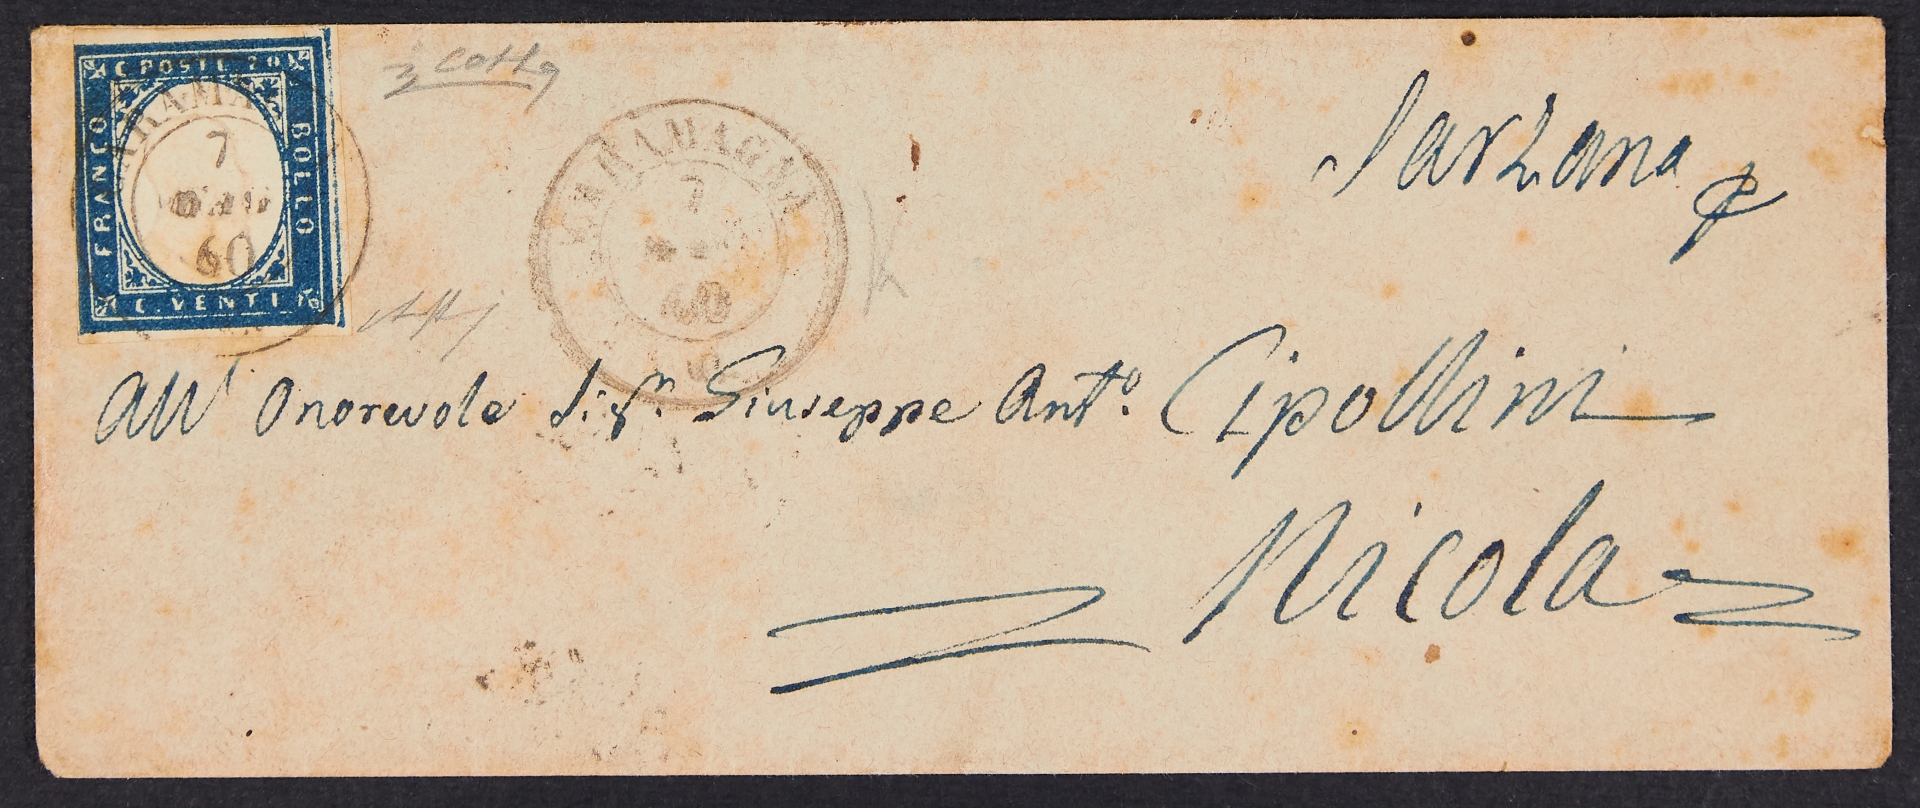 C POSTE 20
FRANCO
BOLLO
C. VENTI
7
60
CARAMAGNA
7
60
Sarzana
All' Onorevole Sig.r Giuseppe Ant.o Cipollini
Nicola